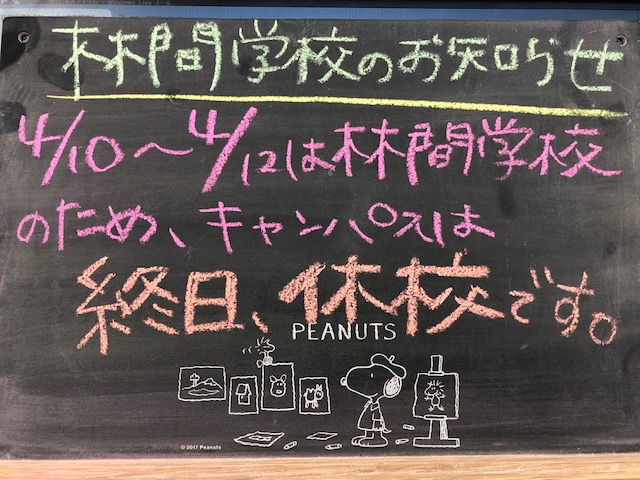 林間学校のお知らせ
4/10〜4/12は林間学校
のため、キャンパスは
終日、休校です。
PEANUTS
© 2017 Peanuts